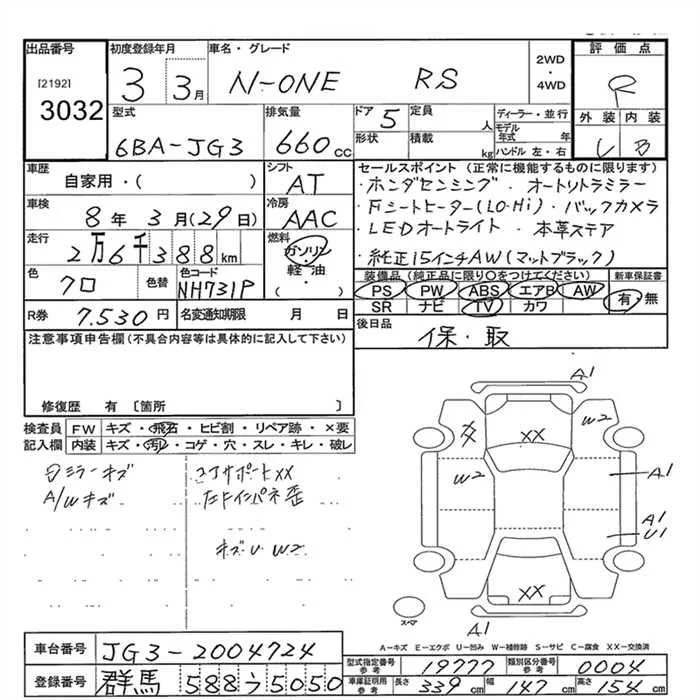 出品番号 初度登録年月 車名・グレード 2WD・4WD 評価点
[2192]
3032 3 3月 N-ONE RS R
型式 排気量 ドア 5 定員 人 ディーラー・並行 外装 内装
6BA-JG3 660cc 形状 積載 kg モデル年式 年 ハンドル 左・右 B
車歴 自家用・( ) シフト AT セールスポイント (正常に機能するものに限ります)
車検 8年3月(29日) 冷房 AAC
・ホンダセンシング ・オートリトラミラー
・Fシートヒーター(LO・Hi) ・バックカメラ
・LEDオートライト ・本革ステア
・純正15インチAW(マットブラック)
走行 2万6千388km 燃料 ガソリン・軽油・( )
色 クロ 色替 色コード NH731P
装備品 (純正品に限り○をつけてください) 新車保証書
PS PW ABS エアB AW 有・無
SR ナビ TV カワ
R券 7.530円 名変通知期限 月 日
後日品 保・取
注意事項申告欄 (不具合内容等は具体的に記入して下さい)
修復歴 有 〔箇所 〕
検査員記入欄 FW キズ・飛石・ヒビ割・リペア跡・×要
内装 キズ・汚れ・コゲ・穴・スレ・キレ・破レ
ミラーキズ コアサポートXX
A/Wキズ
キズU W2
A1
W2
XX
W2
A1
A1
U1
XX
スペア
A1
A-キズ E-エクボ U-凹み W-補修跡 S-サビ C-腐食 XX-交換済
車台番号 JG3-2004724
型式指定番号 参考 19777 類別区分番号 参考 0004
登録番号 群馬 588 5050
車庫証明用 参考 長さ 339cm 幅 147cm 高さ 154cm